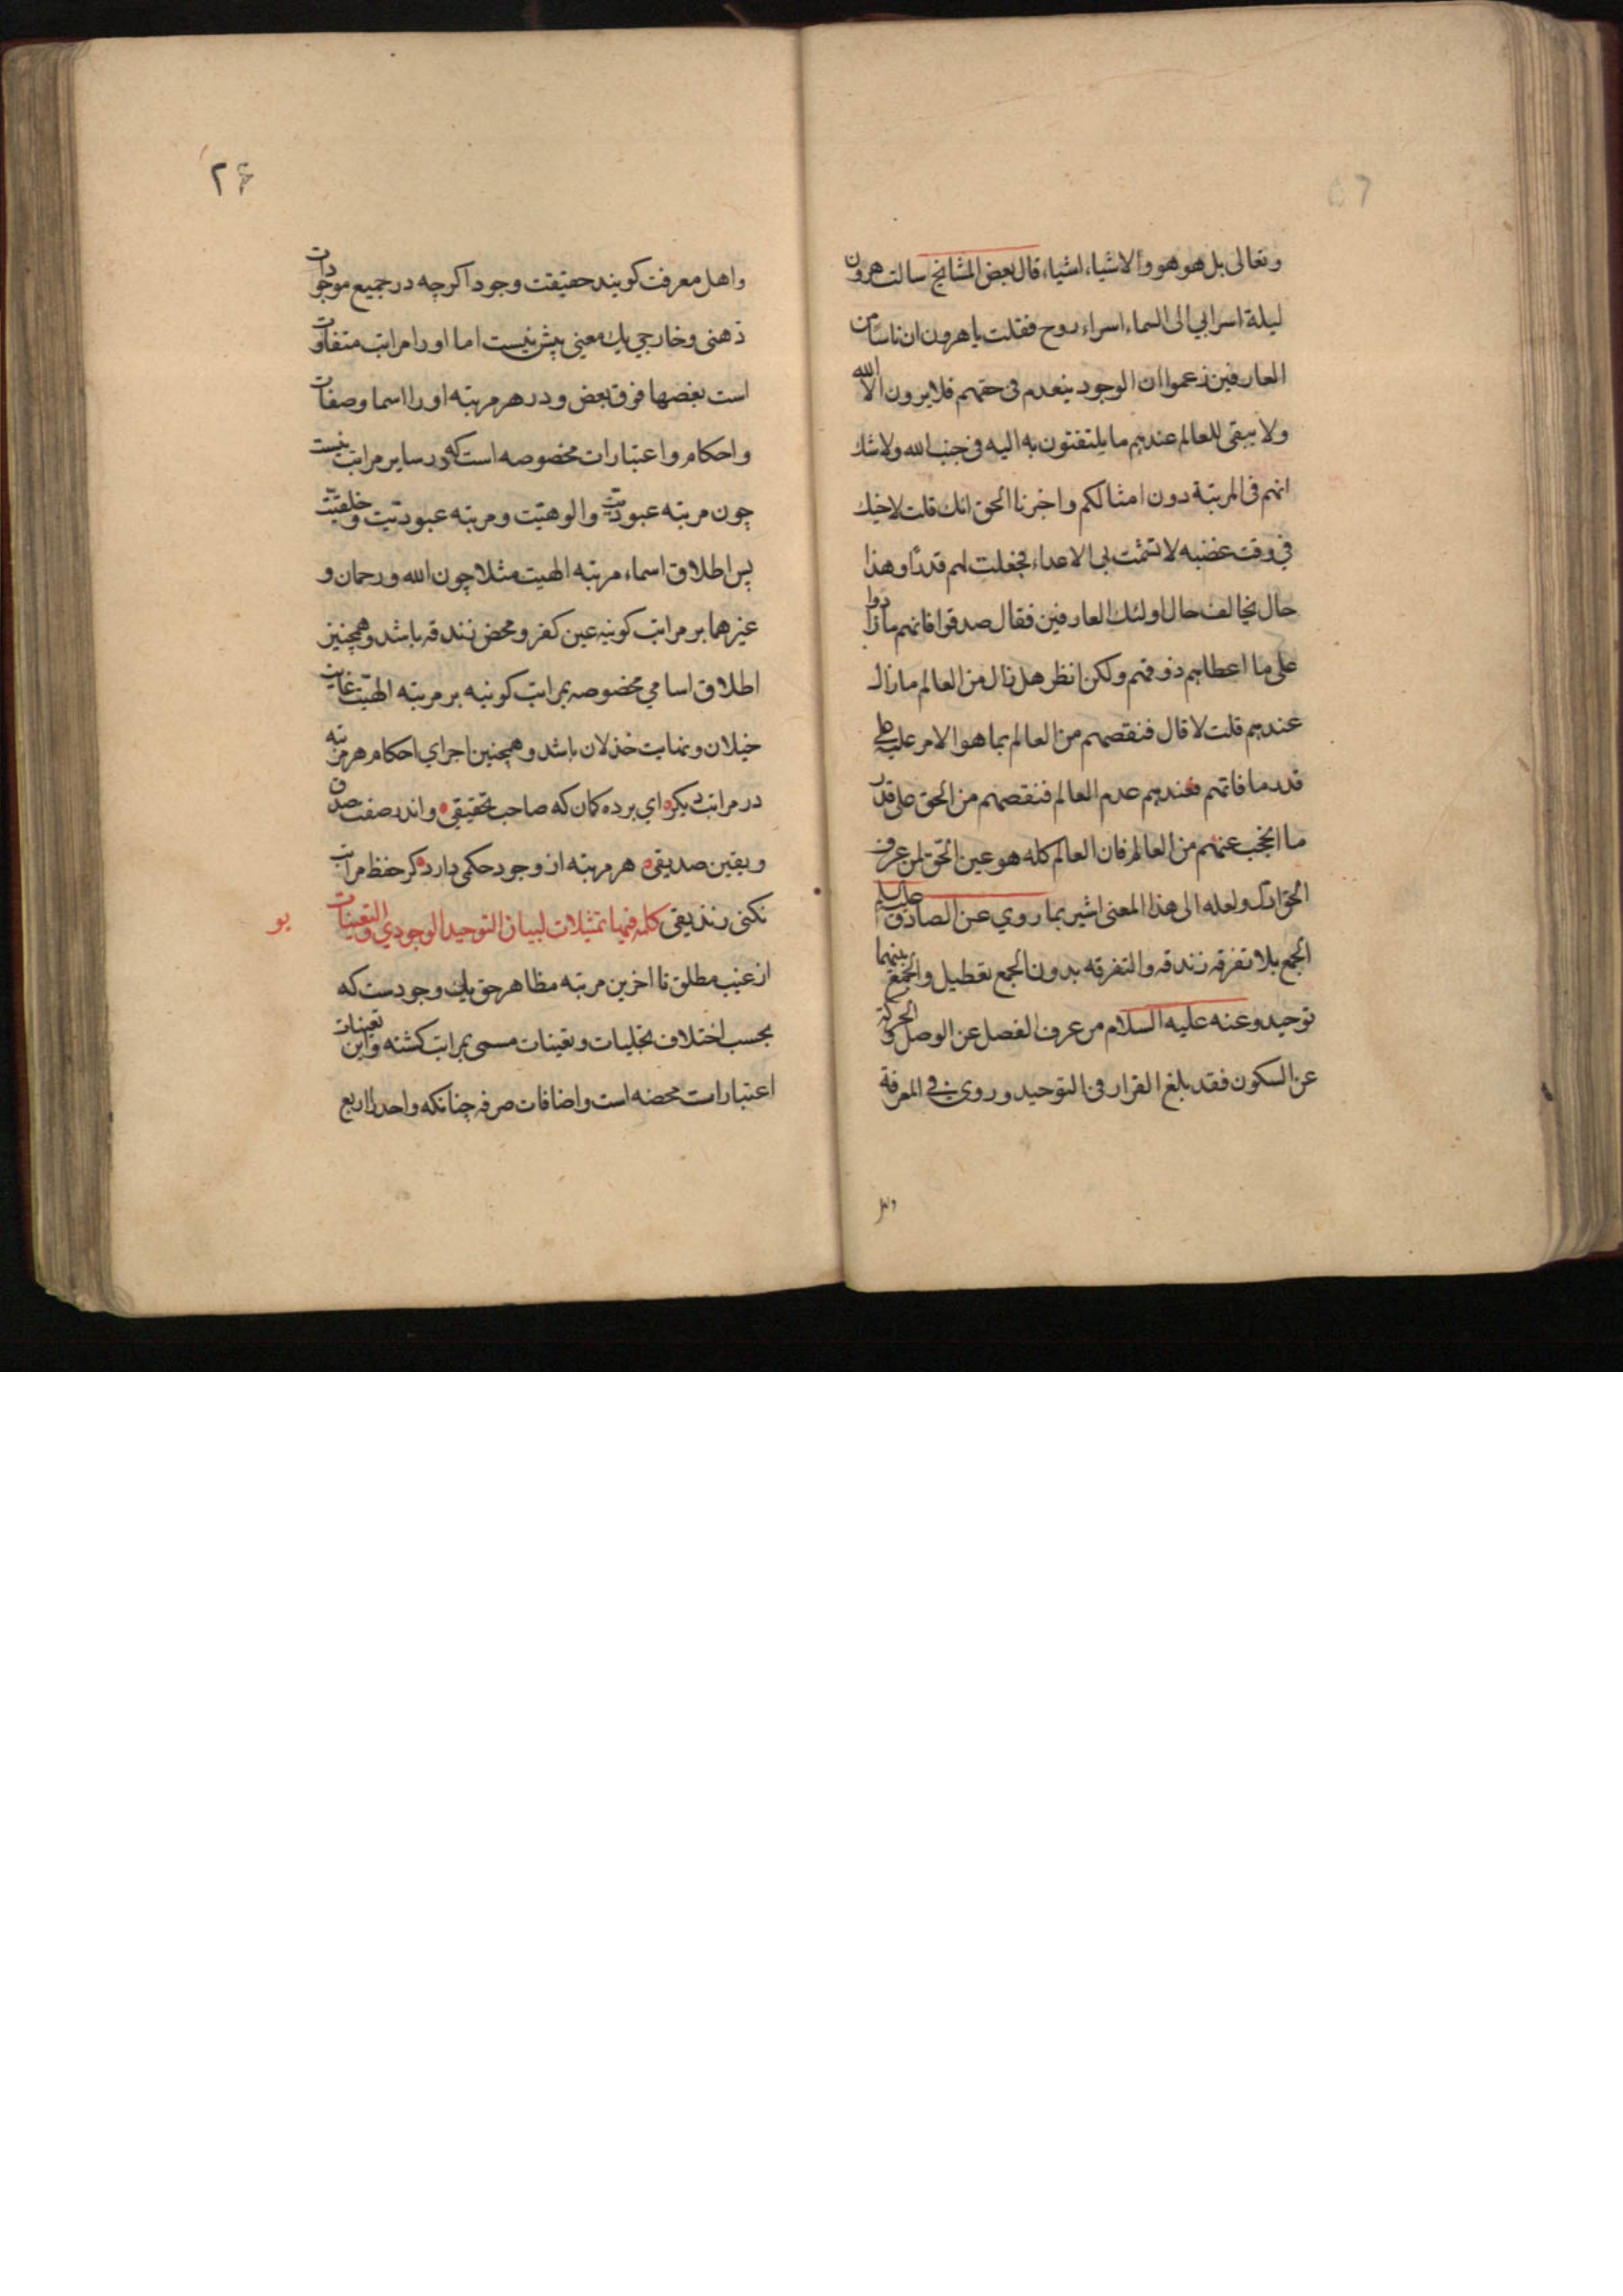 وتعالى بل هو هو والاشياء اشياء قال بعض المشايخ سالت هرون
ليلة اسرابي الى السماء اسراء روح فقلت يا هرون ان ناسا من
العارفين زعموا ان الوجود ينعدم فى حقهم فلا يرون الا الله
ولا يبقى للعالم عندهم ما يلتفتون به اليه فى جنب الله ولا شك
انهم فى المرتبة دون امثالكم واخبرنا الحق انك قلت لاخيك
في وقت غضبه لا تشمت بي الاعداء فجعلت لهم قدرًا وهذا
حال يخالف حال اولئك العارفين فقال صدقوا فانهم مازادوا
على ما اعطاهم ذوقهم ولكن انظر هل زال من العالم مازال
عندهم قلت لا قال فنقصهم من العالم بما هو الامر عليه على
قدر ما فاتهم فعندهم عدم العالم فنقصهم من الحق على قدر
ما انحجب عنهم من العالم فان العالم كله هو عين الحق لمن عرف
الحق ولعله الى هذا المعنى اشير بما روي عن الصادق
الجمع بلا تفرقه زندقه والتفرقه بدون الجمع تعطيل والجمع بينهما
توحيد وعنه عليه السلام من عرف الفصل عن الوصل والحركة
عن السكون فقد بلغ القرار فى التوحيد وروى فى المعرفة
۲۶
واهل معرفت كويند حقيقت وجود اكرچه در جميع موجودات
ذهنى وخارجي يك معنى بيش نيست اما اورا مراتب متفاوت
است بعضها فوق بعض ودر هر مرتبه اورا اسما وصفات
واحكام واعتبارات مخصوصه است كه در ساير مراتب نيست
چون مرتبه والوهيّت ومرتبه عبوديّت وخلقيّت
پس اطلاق اسماء مرتبه الهيت مثلا چون الله ورحمان و
غيرهما بر مراتب كونيه عين كفر ومحض زندقه باشد وهمچنين
اطلاق اسامي مخصوصه بمراتب كونيه بر مرتبه الهيّت غايت
ونهايت خذلان باشد وهمچنين اجراي احكام هر مرتبه
در مراتب ديكر اي برده كمان كه صاحب تحقيقى واندر صفت صدق
ويقين صديقى هر مرتبه از وجود حكمى دارد كر حفظ مراتب
نكنى زنديقى كلمه فيها تمثيلات لبيان التوحيد الوجودي والتعينات
يو
از غيب مطلق تا اخرين مرتبه مظاهر حق يك وجودست كه
بحسب اختلاف تجليات وتعينات مسمى بمراتب كشته واين تعينات
اعتبارات محضه است واضافات صرفه چنانكه واحد را اربع